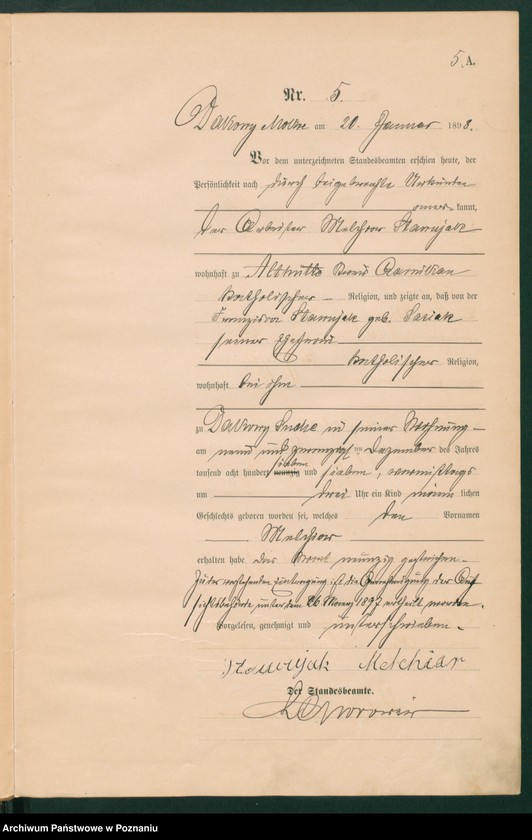 5. A.
Nr. 5.
Dakowy Mokre am 20. Januar 1898.
Vor dem unterzeichneten Standesbeamten erschien heute, der
Persönlichkeit nach durch beigebrachte Urkunden
kannt,
der Arbeiter Melchior
wohnhaft zu Kreis
katholischer – Religion, und zeigte an, daß von der
geb.
seiner Ehefrau
katholischer Religion,
wohnhaft bei ihm
zu Dakowy Suche in seiner Wohnung –
am neun und zwanzigsten Dezember des Jahres
tausend acht hundert sieben
neunzig und sieben, vormittags
um drei Uhr ein Kind männlichen
Geschlechts geboren worden sei, welches den Vornamen
Melchior
erhalten habe das Wort neunzig gestrichen –
Zu der vorstehenden Eintragung ist die Genehmigung der Auf
sichtsbehörde unter dem 26 ertheilt worden.
Vorgelesen, genehmigt und unterschrieben –
Melchiar
Der Standesbeamte.
Archiwum Państwowe w Poznaniu